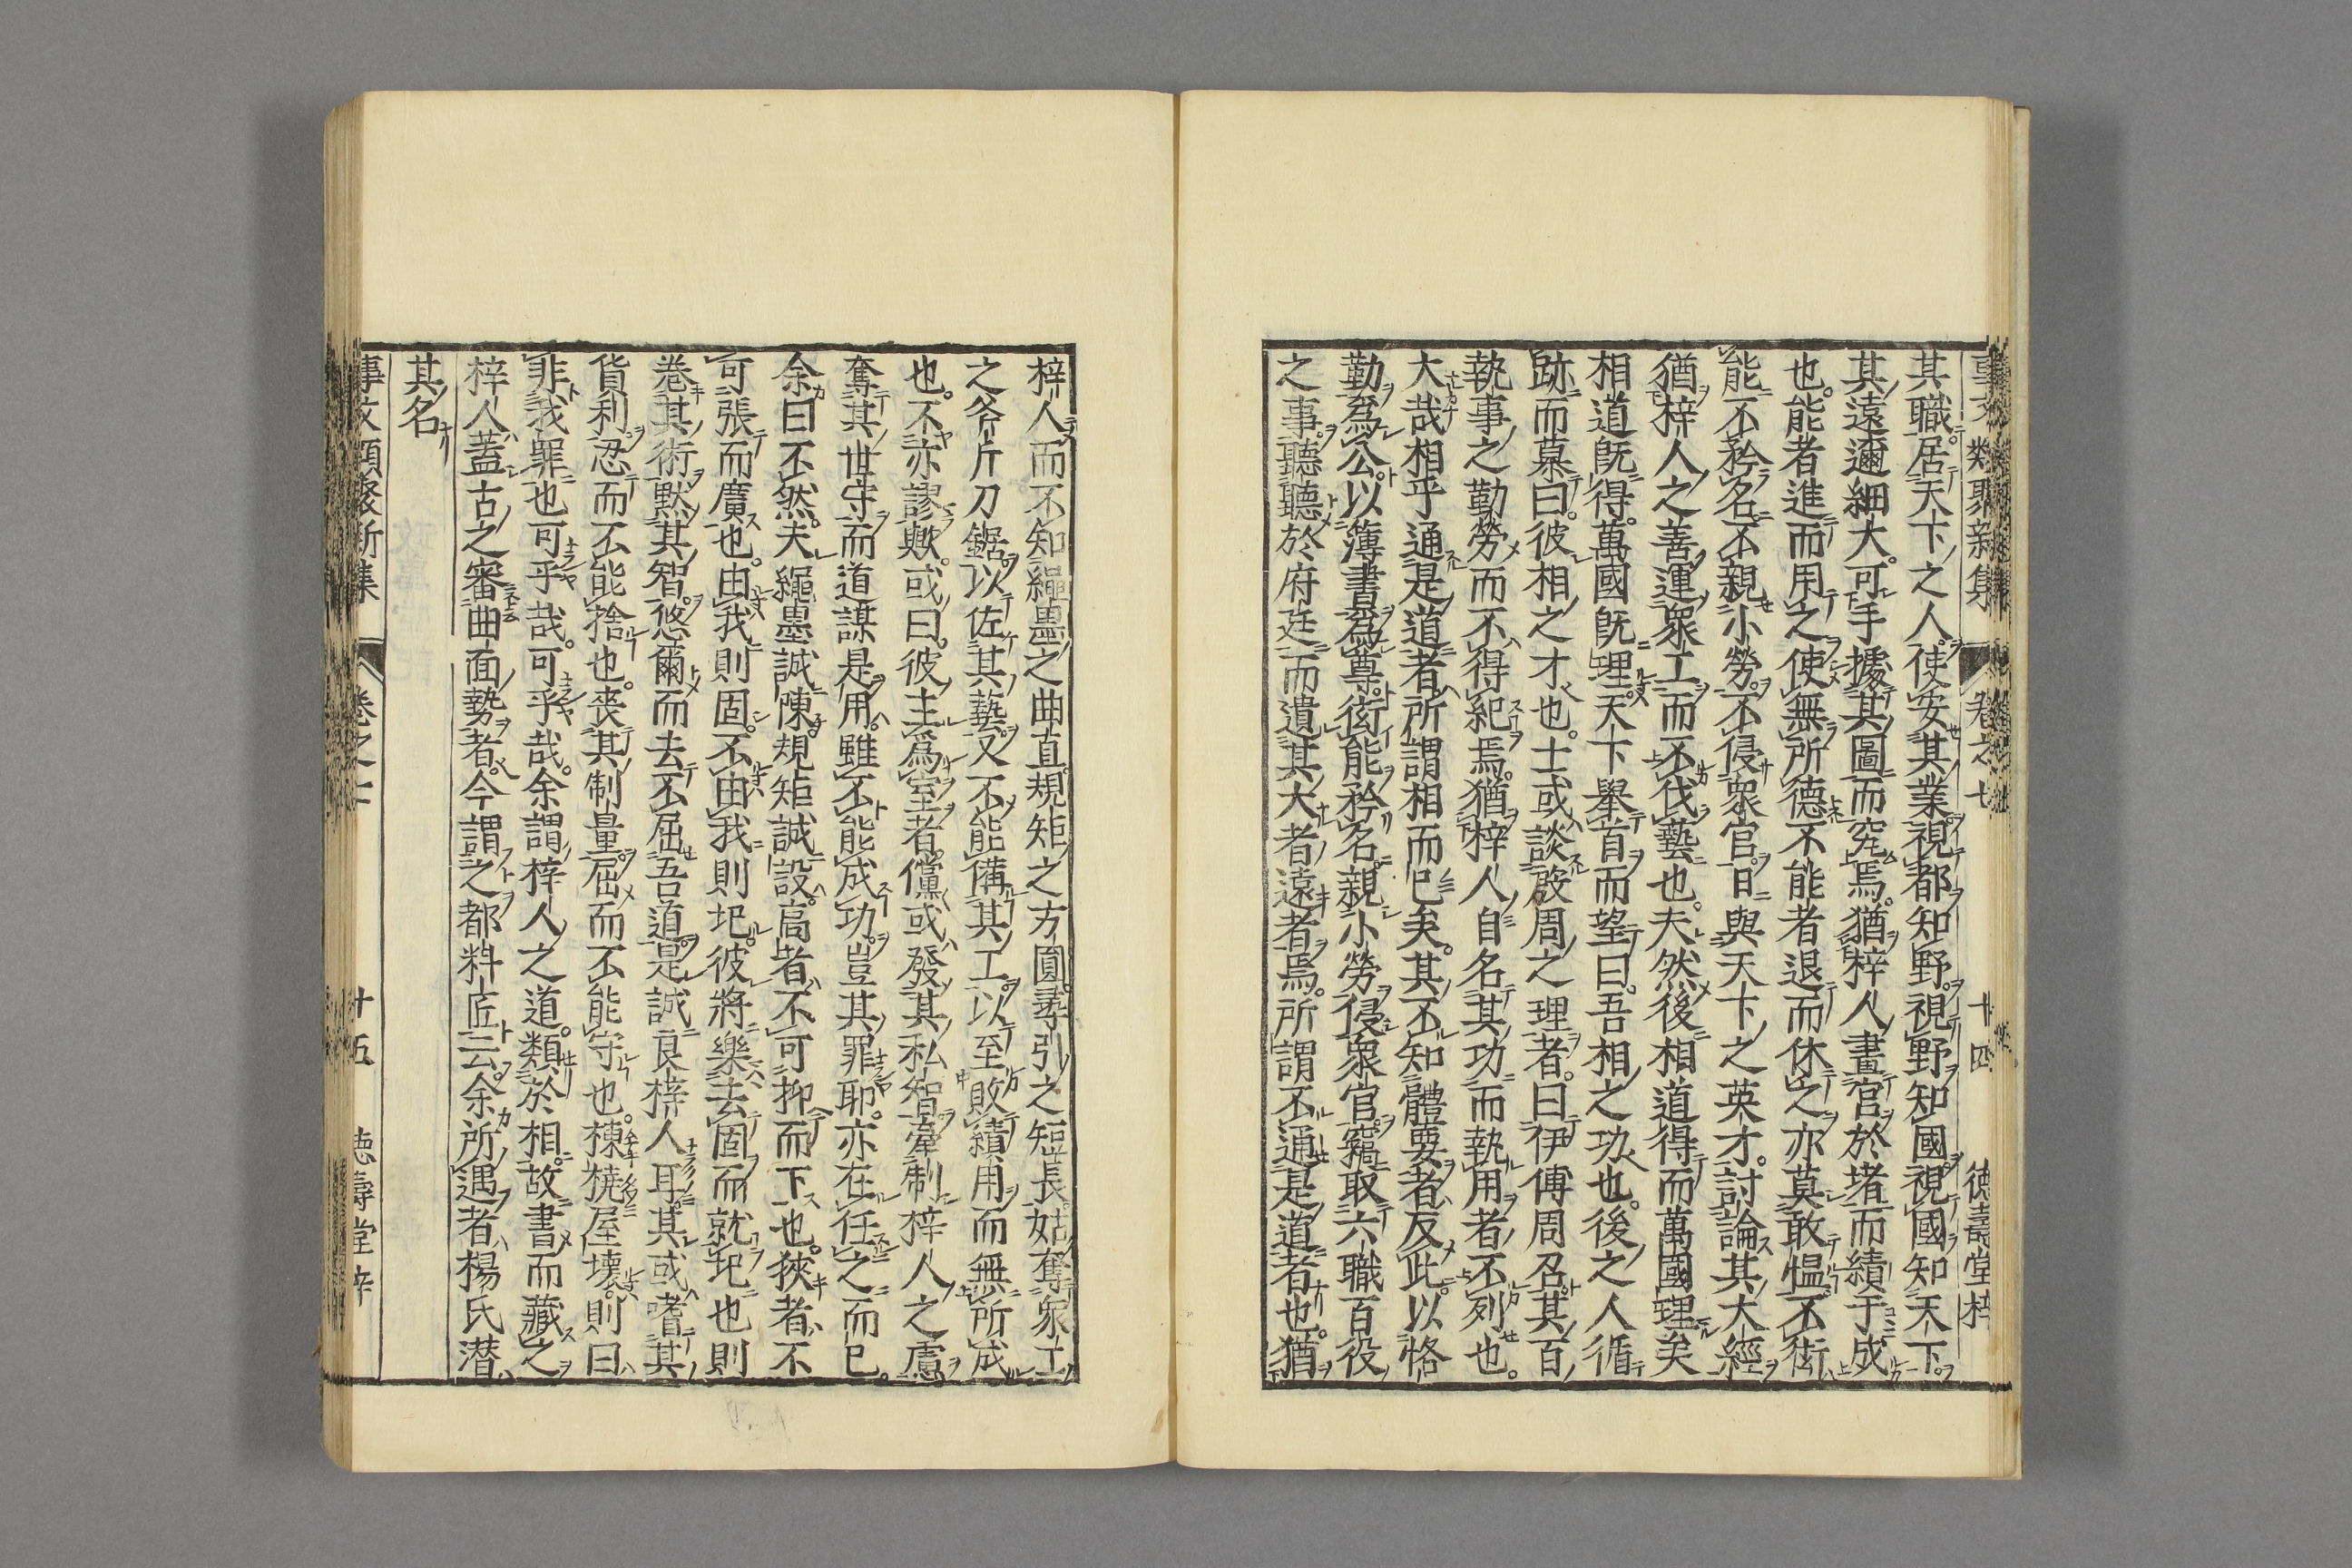 事文類聚新集　卷之七　十四　德壽堂梓
其職居天下之人使安其業視都知野視野知國視國知天下
其遠邇細大可手據其圖而究焉猶梓人畫宮於堵而績于成
也能者進而用之使無所德不能者退而休之亦莫敢慍不衒
能不矜名不親小勞不侵衆官日與天下之英才討論其大經
猶梓人之善運衆工而不伐藝也夫然後相道得而萬國理矣
相道旣得萬國旣理天下舉首而望曰吾相之功也後之人循
跡而慕曰彼相之才也士或談殷周之理者曰伊傅周召其百
執事之勤勞而不得紀焉猶梓人自名其功而執用者不列也
大哉相乎通是道者所謂相而已矣其不知體要者反此以恪
勤爲公以簿書爲尊衒能矜名親小勞侵衆官竊取六職百役
之事聽聽於府廷而遺其大者遠者焉所謂不通是道者也猶
梓人而不知繩墨之曲直規矩之方圓尋引之短長姑奪衆工
之斧斤刀鋸以佐其藝又不能備其工以至敗績用而無所成
也不亦謬歟或曰彼主爲室者儻或發其私智牽制梓人之慮
奪其世守而道謀是用雖不能成功豈其罪耶亦在任之而已
余曰不然夫繩墨誠陳規矩誠設高者不可抑而下也狹者不
可張而廣也由我則固不由我則圯彼將樂去固而就圯也則
卷其術默其智悠爾而去不屈吾道是誠良梓人耳其或嗜其
貨利忍而不能捨也喪其制量屈而不能守也棟橈屋壞則曰
非我罪也可乎哉可乎哉余謂梓人之道類於相故書而藏之
梓人蓋古之審曲面勢者今謂之都料匠云余所遇者楊氏潜
其名
事文類聚新集　卷之七　十五　德壽堂梓